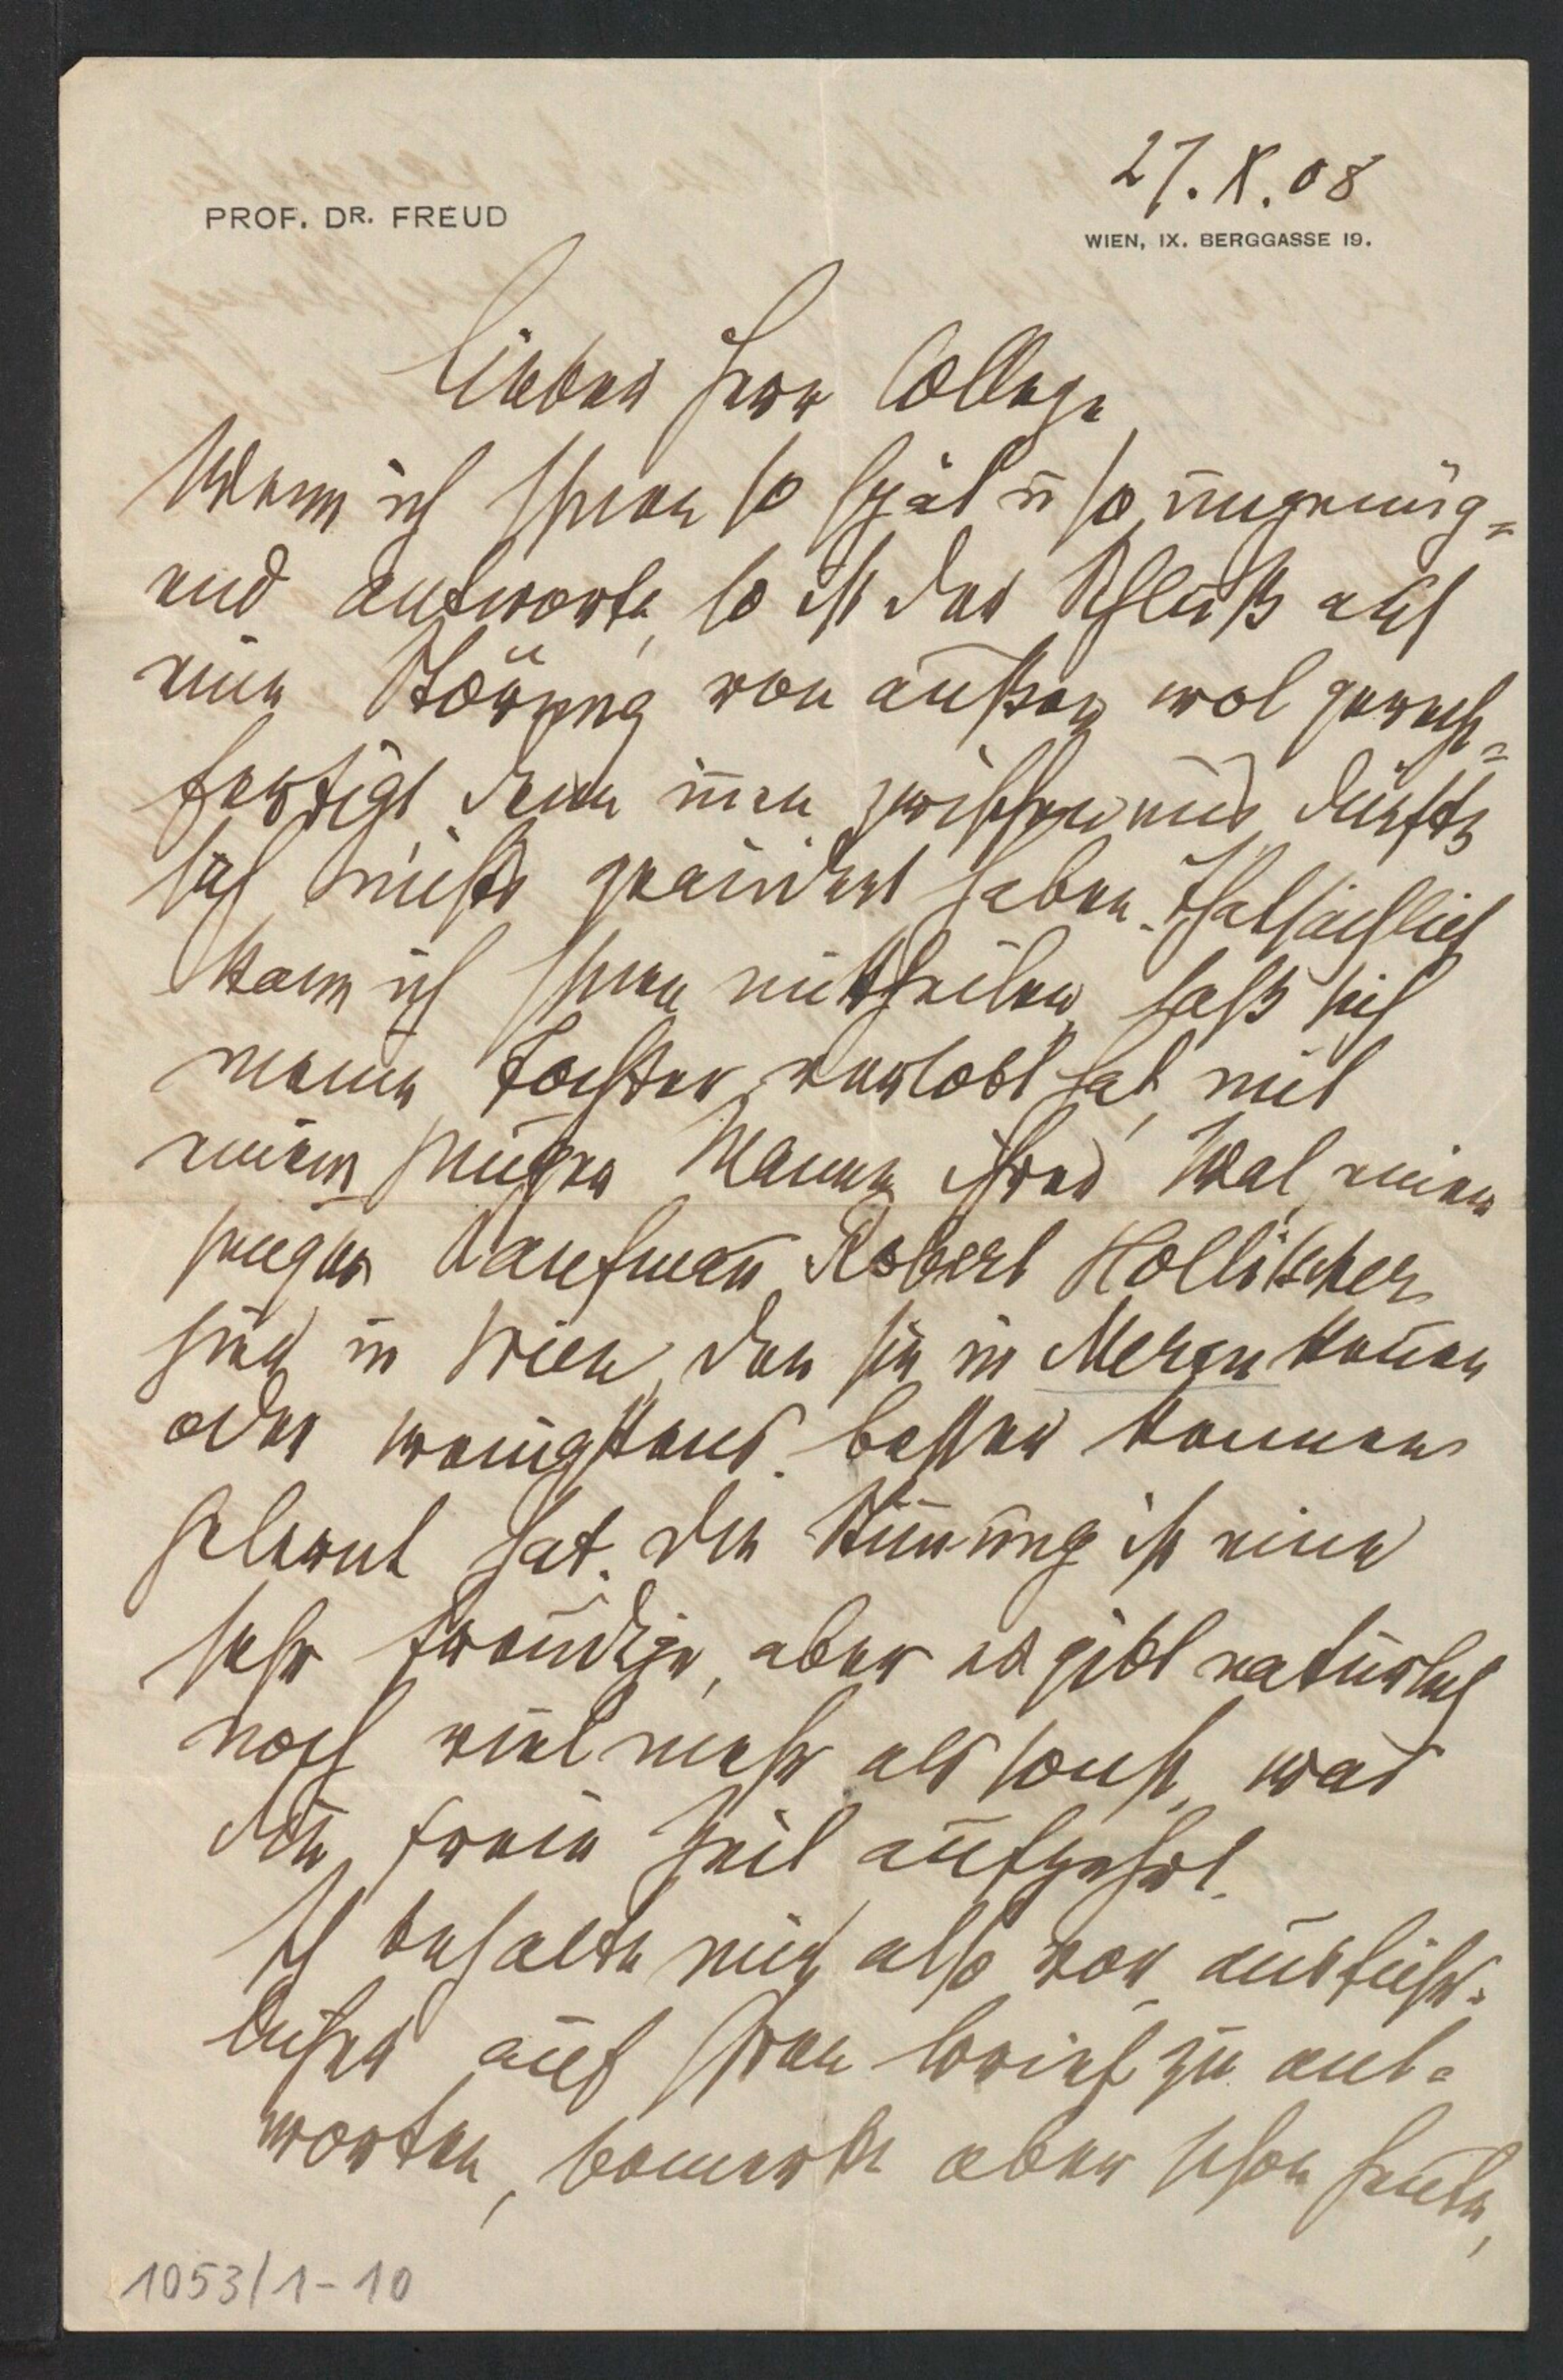 27. X. 08
PROF. DR. FREUD
WIEN, IX. BERGGASSE 19.
Lieber Herr College
Wenn ich Ihnen so spät u so ungenüg=
end antworte, so ist der Schluß auf
eine Störung von außen wol gerecht=
fertigt, denn innen zwischen uns dürfte
sich nichts geändert haben. Thatsächlich
kann ich Ihnen mittheilen, daß sich
meine Tochter verlobt hat, mit
einem jungen Manne ihrer Wal, einem
jungen Kaufmann Robert Hollitscher
hier in Wien, den sie in Meran kennen
oder wenigstens besser kennen
gelernt hat. Die Stimmung ist eine
sehr freudige, aber es gibt natürlich
noch viel mehr als sonst, was
die freie Zeit aufzehrt.
Ich behalte mir also vor, ausführ=
licher auf Ihren Brief zu ant=
worten, bemerke aber schon heute,
1053/1-10